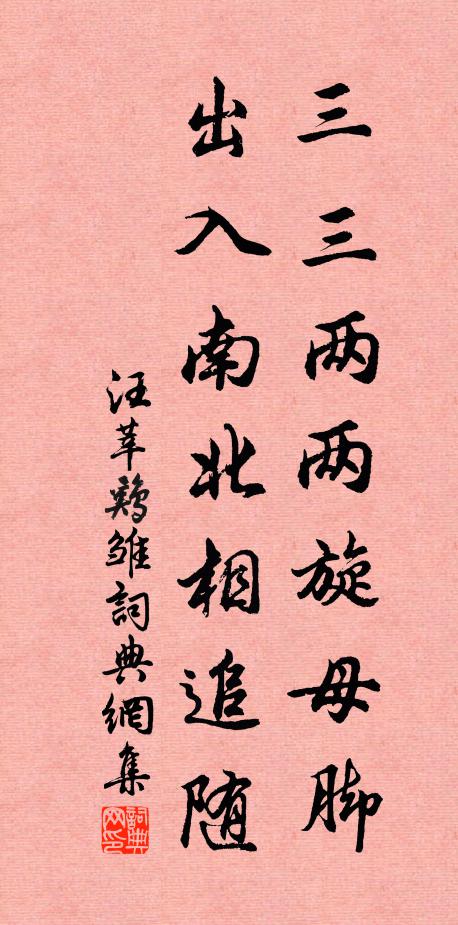 三三两两旋母脚
出入南北相追随
汪莘鸡雏詞典網集
詞典网印